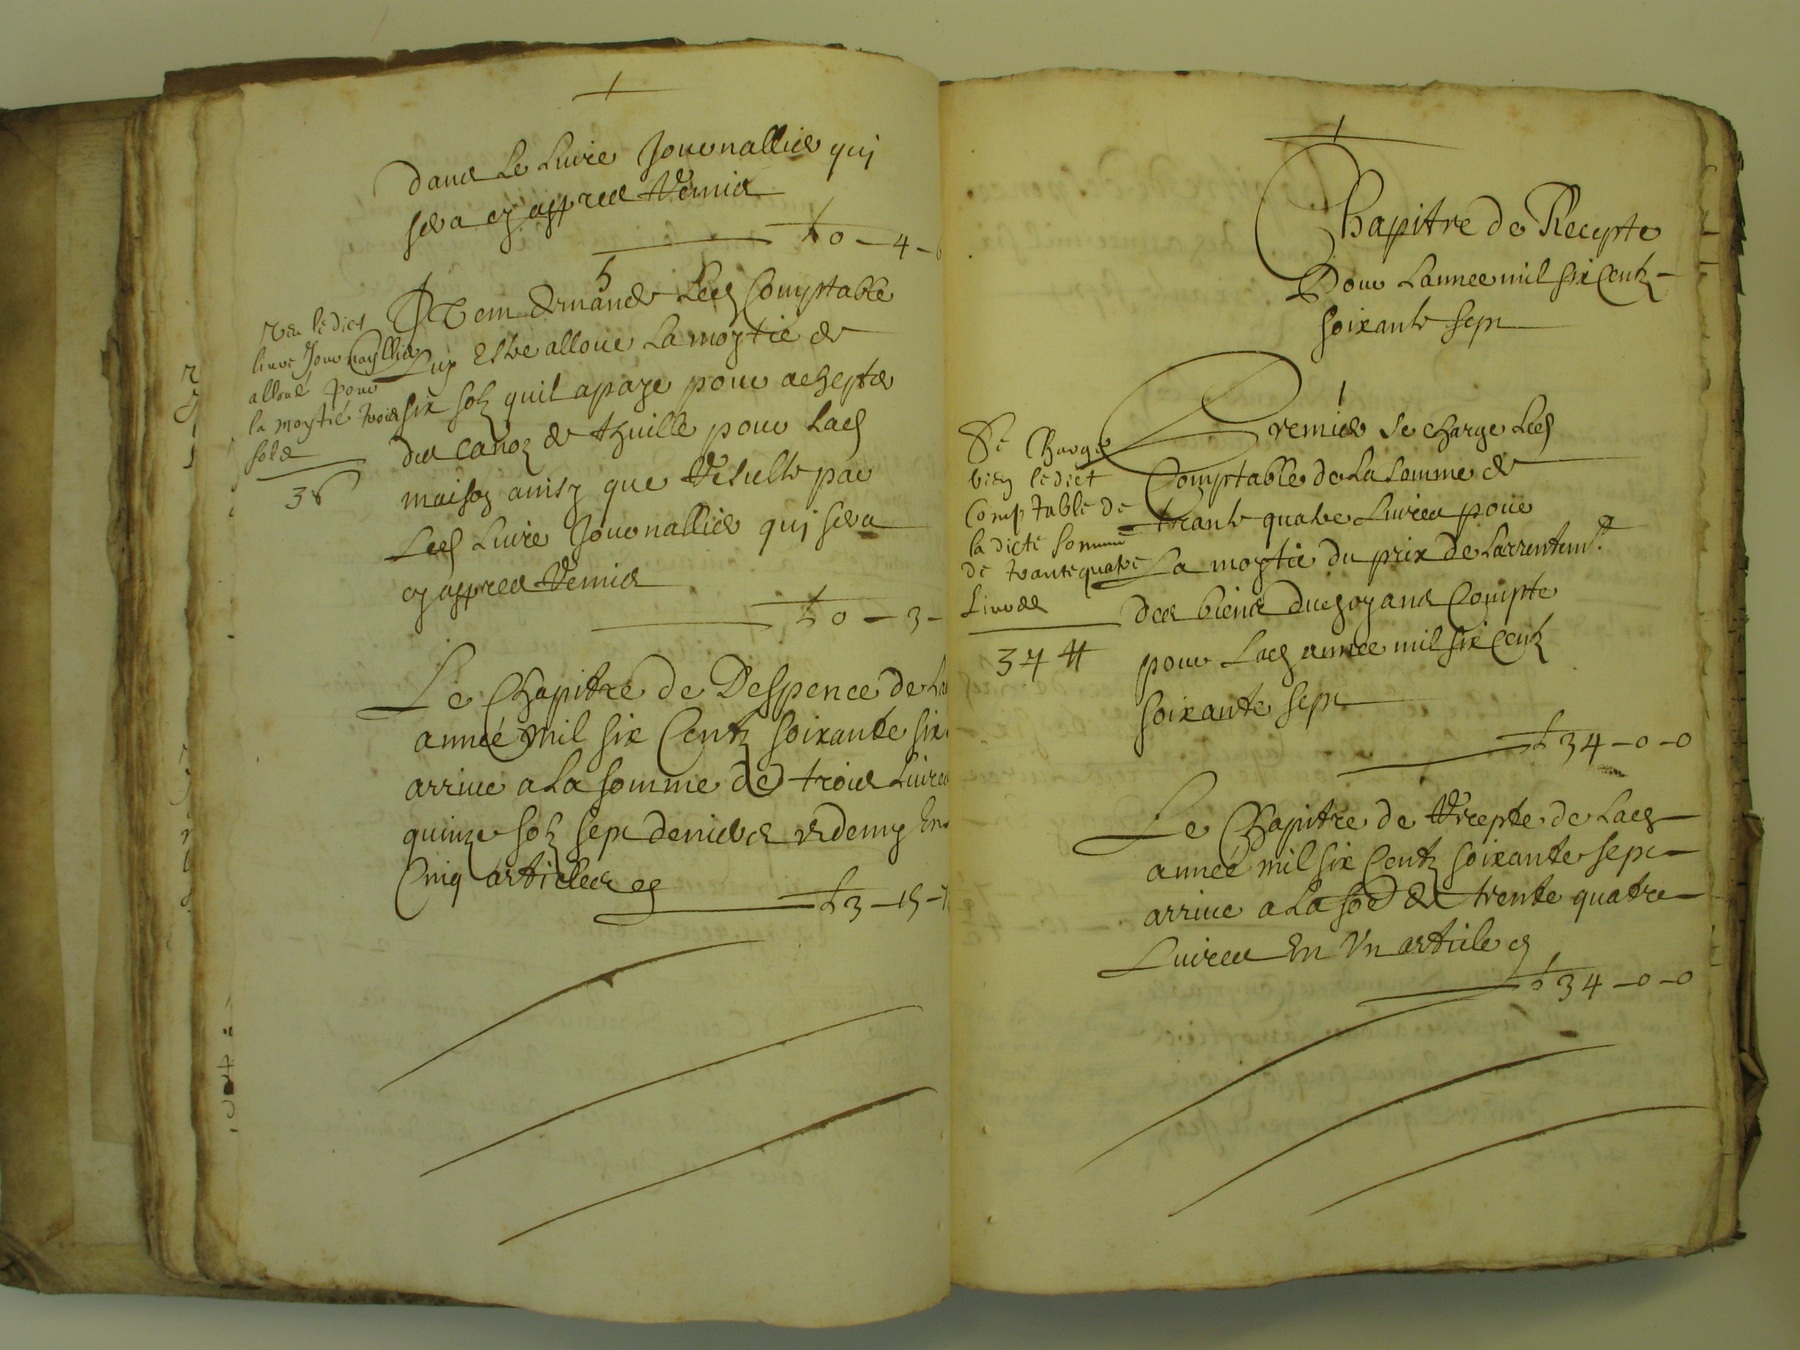 dans Le Livre Journallier quj
sera cy appres Remis
£ 0 – 4 – 6
5
Item demande Led Comptable
Luy Estre alloue La moytie de
six solz quil a paye pour achepter
du canoz de thuille pour Lad
maison ainsy que Resulte par
Led Livre Journallier quj sera
cy appres Remis
£ 0 – 3 –
Veu le dict
livre Journallier
alloué pour
la moytié trois
sols
3 s
Le Chapitre de Despence de La
année mil six Centz soixante six
arrive a La somme de trois Livres
quinze solz sept deniers et demy En
Cinq articles cy
£ 3 – 15 – 7
Chapitre de Recepte
Pour Lannee mil six Centz
soixante sept
1
Premier se charge Led
Comptable de La somme de
trante quatre Livres pour
La moytie du prix de Larrentemt
des biens du croyans Compte
pour Lad annee mil six Centz
soixante sept
£ 34 – 0 – 0
Se Charge
bien le dict
Comptable de
la dicte somme
de trante quatre
Livres
34 ₶
Le Chapitre de Recepte de Lad
année mil six Centz soixante sept
arrive a La soe de trente quatre
Livres En Vn article cy
£ 34 – 0 – 0